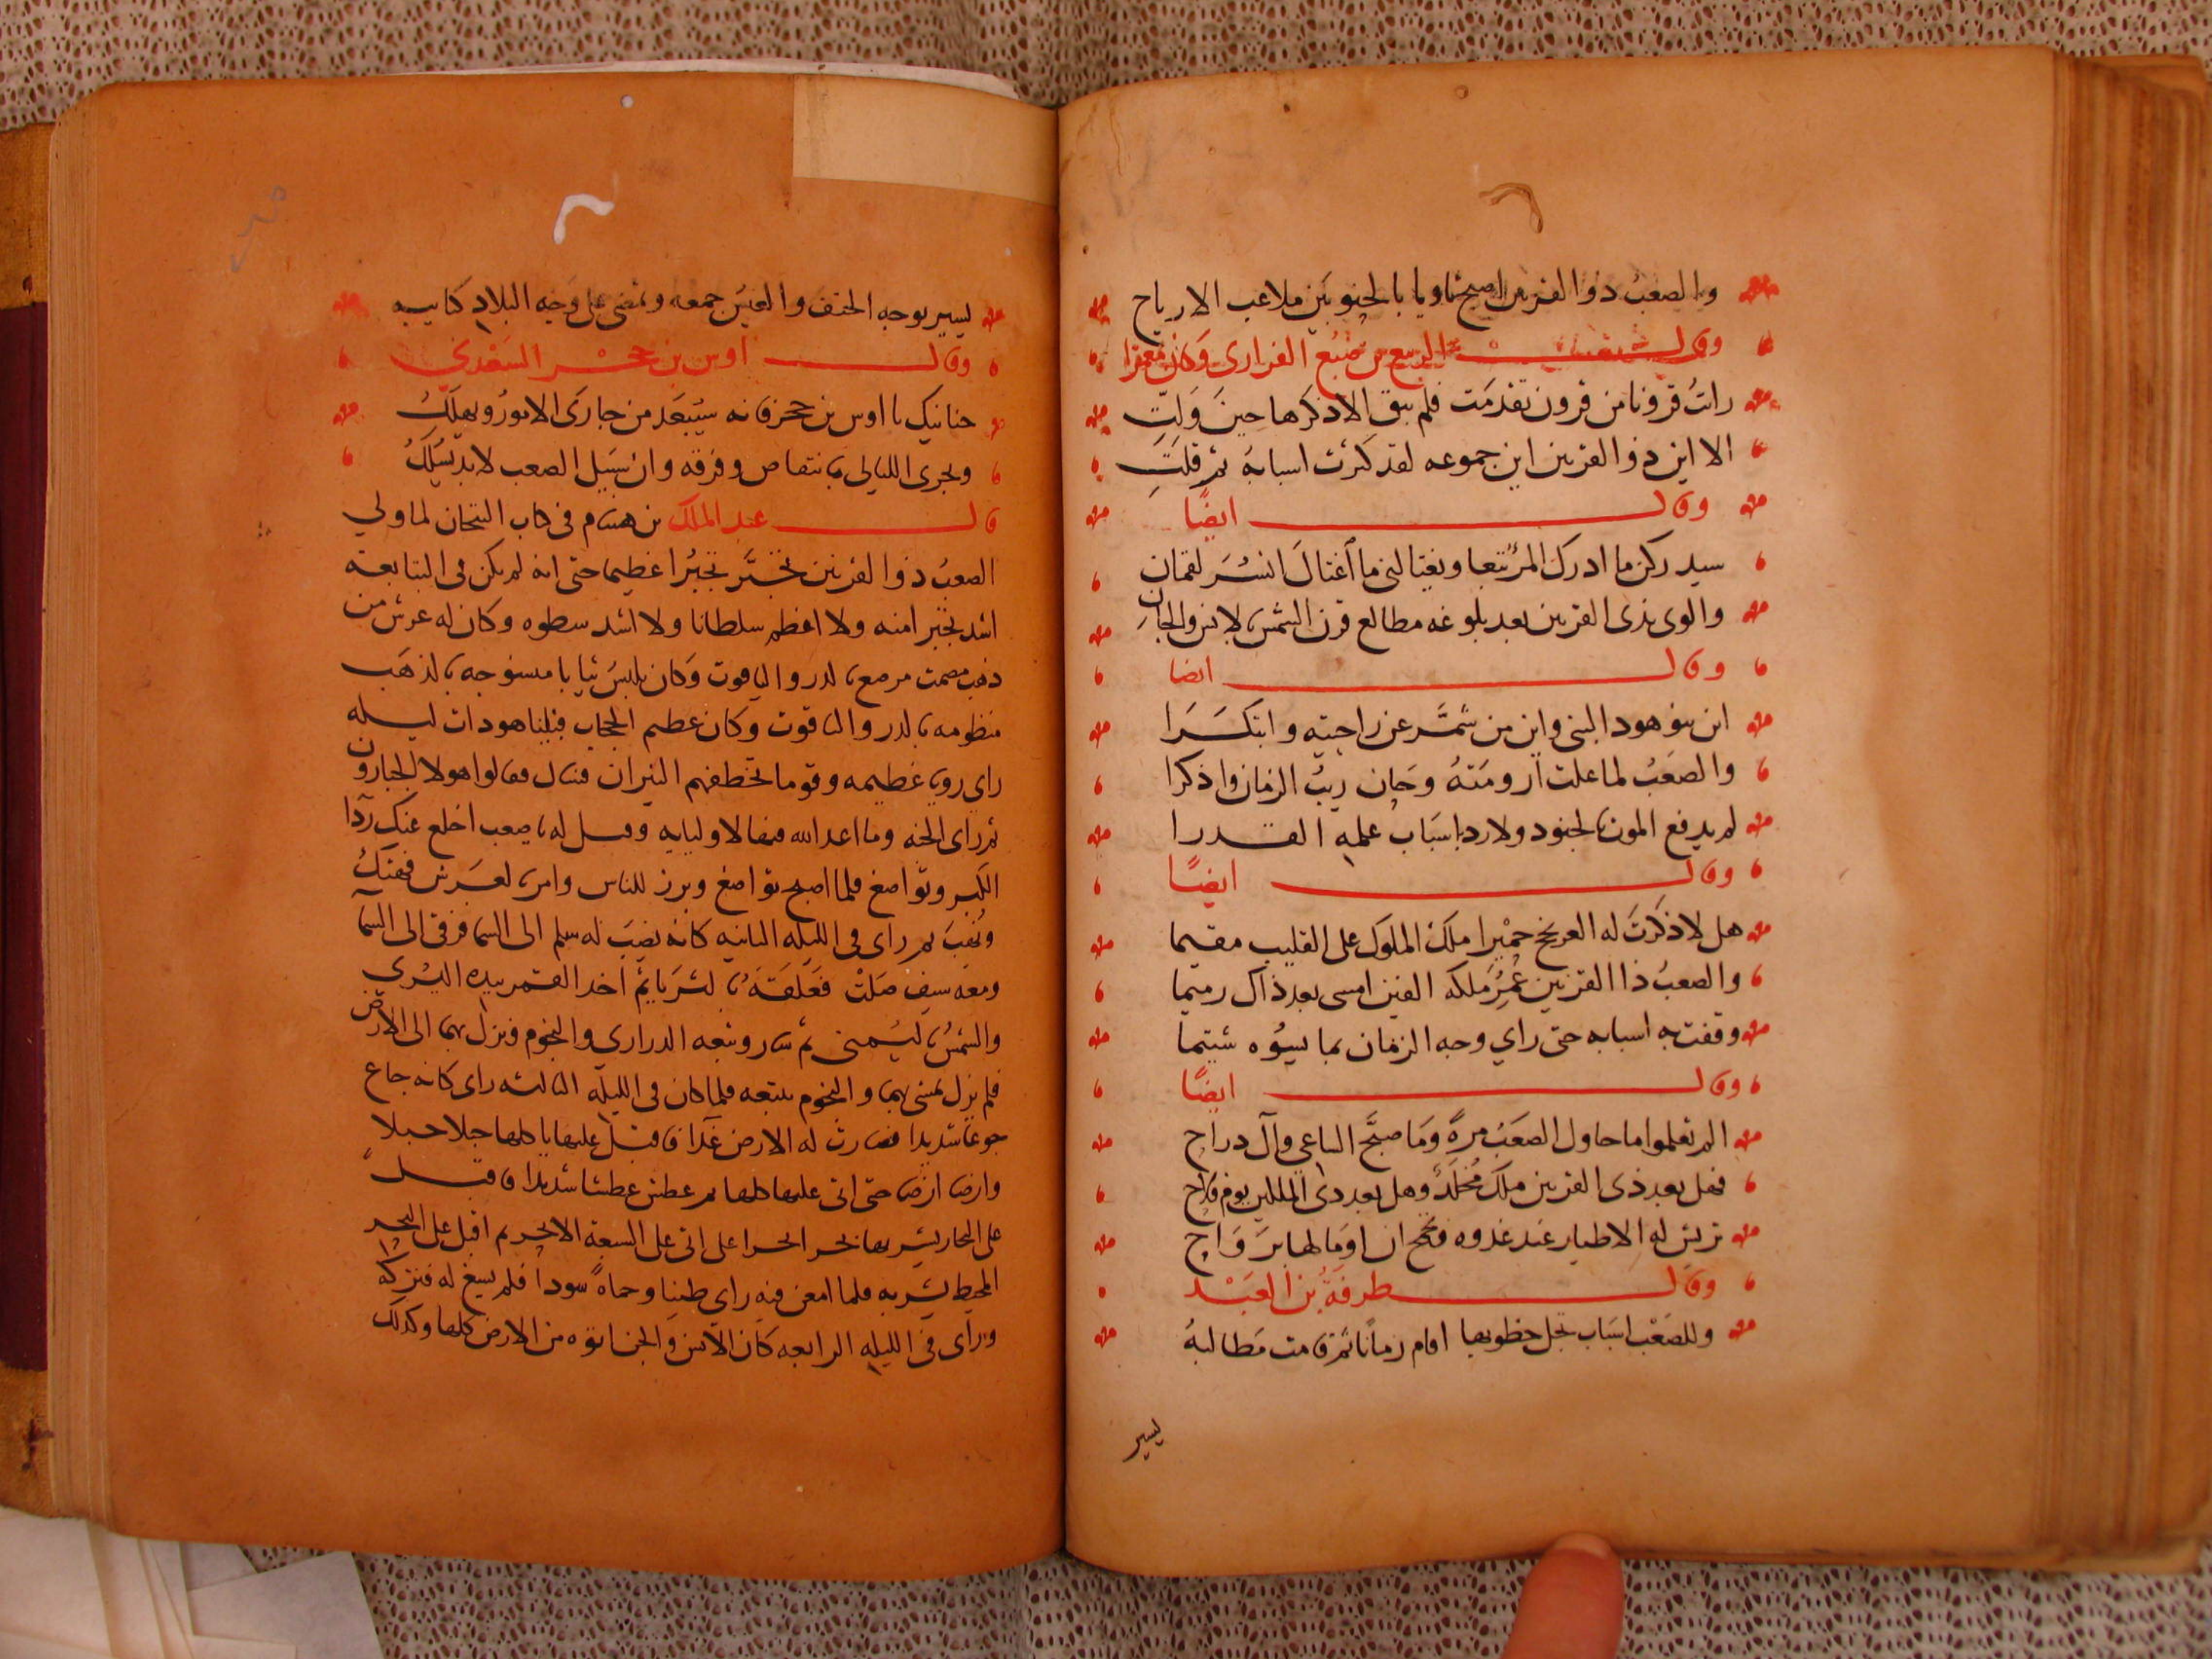 والصعب ذوالقرنين اصبح ثاويا بالحنو بين ملاعب الارياح
وقال الربيع بن ضبع الفزارى وكان معمرا
رات قرونا من قرون تقدمت فلم يبق الا ذكرها حين ولت
الا اين ذوالقرنين اين جموعه لقد كثرت اسبابه ثم قلت
وقال ايضًا
سيدركنى ما ادرك المرء تبعا ويغتالنى ما اغتال انسر لقمان
والوى بذى القرنين بعد بلوغه مطالع قرن الشمس بالانس والجان
وقال ايضا
اين بنو هود النبى واين من شمَّر عن راحتيه وابتكرا
والصعب لما علت ارومته وحان ريب الزمان واذكرا
لم يدفع الموت بالجنود ولا رد باسباب علمه القدرا
وقال ايضًا
هل لا ذكرت له العرنجج حميرا ملك الملوك على القليب مقيما
والصعب ذا القرنين عُمِّر ملكه الفين امسى بعد ذاك رميما
وقفت به اسبابه حتى راي وجه الزمان بما يسوه شتيما
وقال ايضًا
الم تعلموا ما حاول الصعب مرةً وما صبَّح الباغي وآل دراج
فهل بعد ذى القرنين ملك مُخلَّد وهل بعد ذى الملكين يوم فلاج
تزين له الاطيار عند غدوه
وقال طرفة بن العبد
وللصعب اسباب تجل خطوبها اقام زمانًا ثم قامت مطالبه
يسير
يسير بوجه الحتف والعيش جمعه وتمضى على وجه البلاد كتايبه
وقال اوس بن حجر السعدي
حنانيك يا اوس بن حجر فانه سيبعد من جارى الامور ويهلك
وتجرى الليالى بانتقاص وفرقة وان سبيل الصعب لا بد يُسلك
قال عبد الملك بن هشام فى كتاب التيجان لما ولي
الصعب ذوالقرنين تجبَّر تجبُّرا عظيما حتى انه لم يكن فى التبابعة
اشد تجبرا منه ولا اعظم سلطانا ولا اشد سطوه وكان له عرش من
ذهب مصمت مرصع بالدر والياقوت وكان يلبس ثيابا منسوجه بالذهب
منظومه بالدر والياقوت وكان عظيم الحجاب فبينا هو ذات ليله
راى رويا عظيمه وقوما تخطفهم النيران فسال فقالوا هولا الجبارون
ثم راى الجنه وما اعد الله فيها لاوليايه وقيل له يا صعب اخلع عنك ردا
الكبر وتواضع فلما اصبح تواضع وبرز للناس وامر بالعرش فهتك
ونُهب ثم راى فى الليلة الثانيه كانه نصب له سلم الى السما فرقى الى السما
ومعه سيف صلت فعلقه بالثريا ثم اخذ القمر بيده اليسرى
والشمس باليمنى ثم سار وتبعه الدرارى والنجوم ونزل بهما الى الارض
فلم يزل يمشى بهما والنجوم تتبعه فلما كان فى الليلة الثالثه راى كانه جاع
جوعا شديدا فصارت له الارض غذا فاقبل عليها ياكلها جبلا جبلا
وارضا ارضا حتى اتى عليها كلها ثم عطش عطشا شديدا فاقبل
على البحار يشربها بحرا بحرا حتى اتى على السبعة الابحر ثم اقبل على البحر
المحيط يشربه فلما امعن فيه راى طينا وحماةً سودا فلم يسغ له فتركه
وراى فى الليلة الرابعه كان الانس والجن اتوه من الارض كلها وكذلك